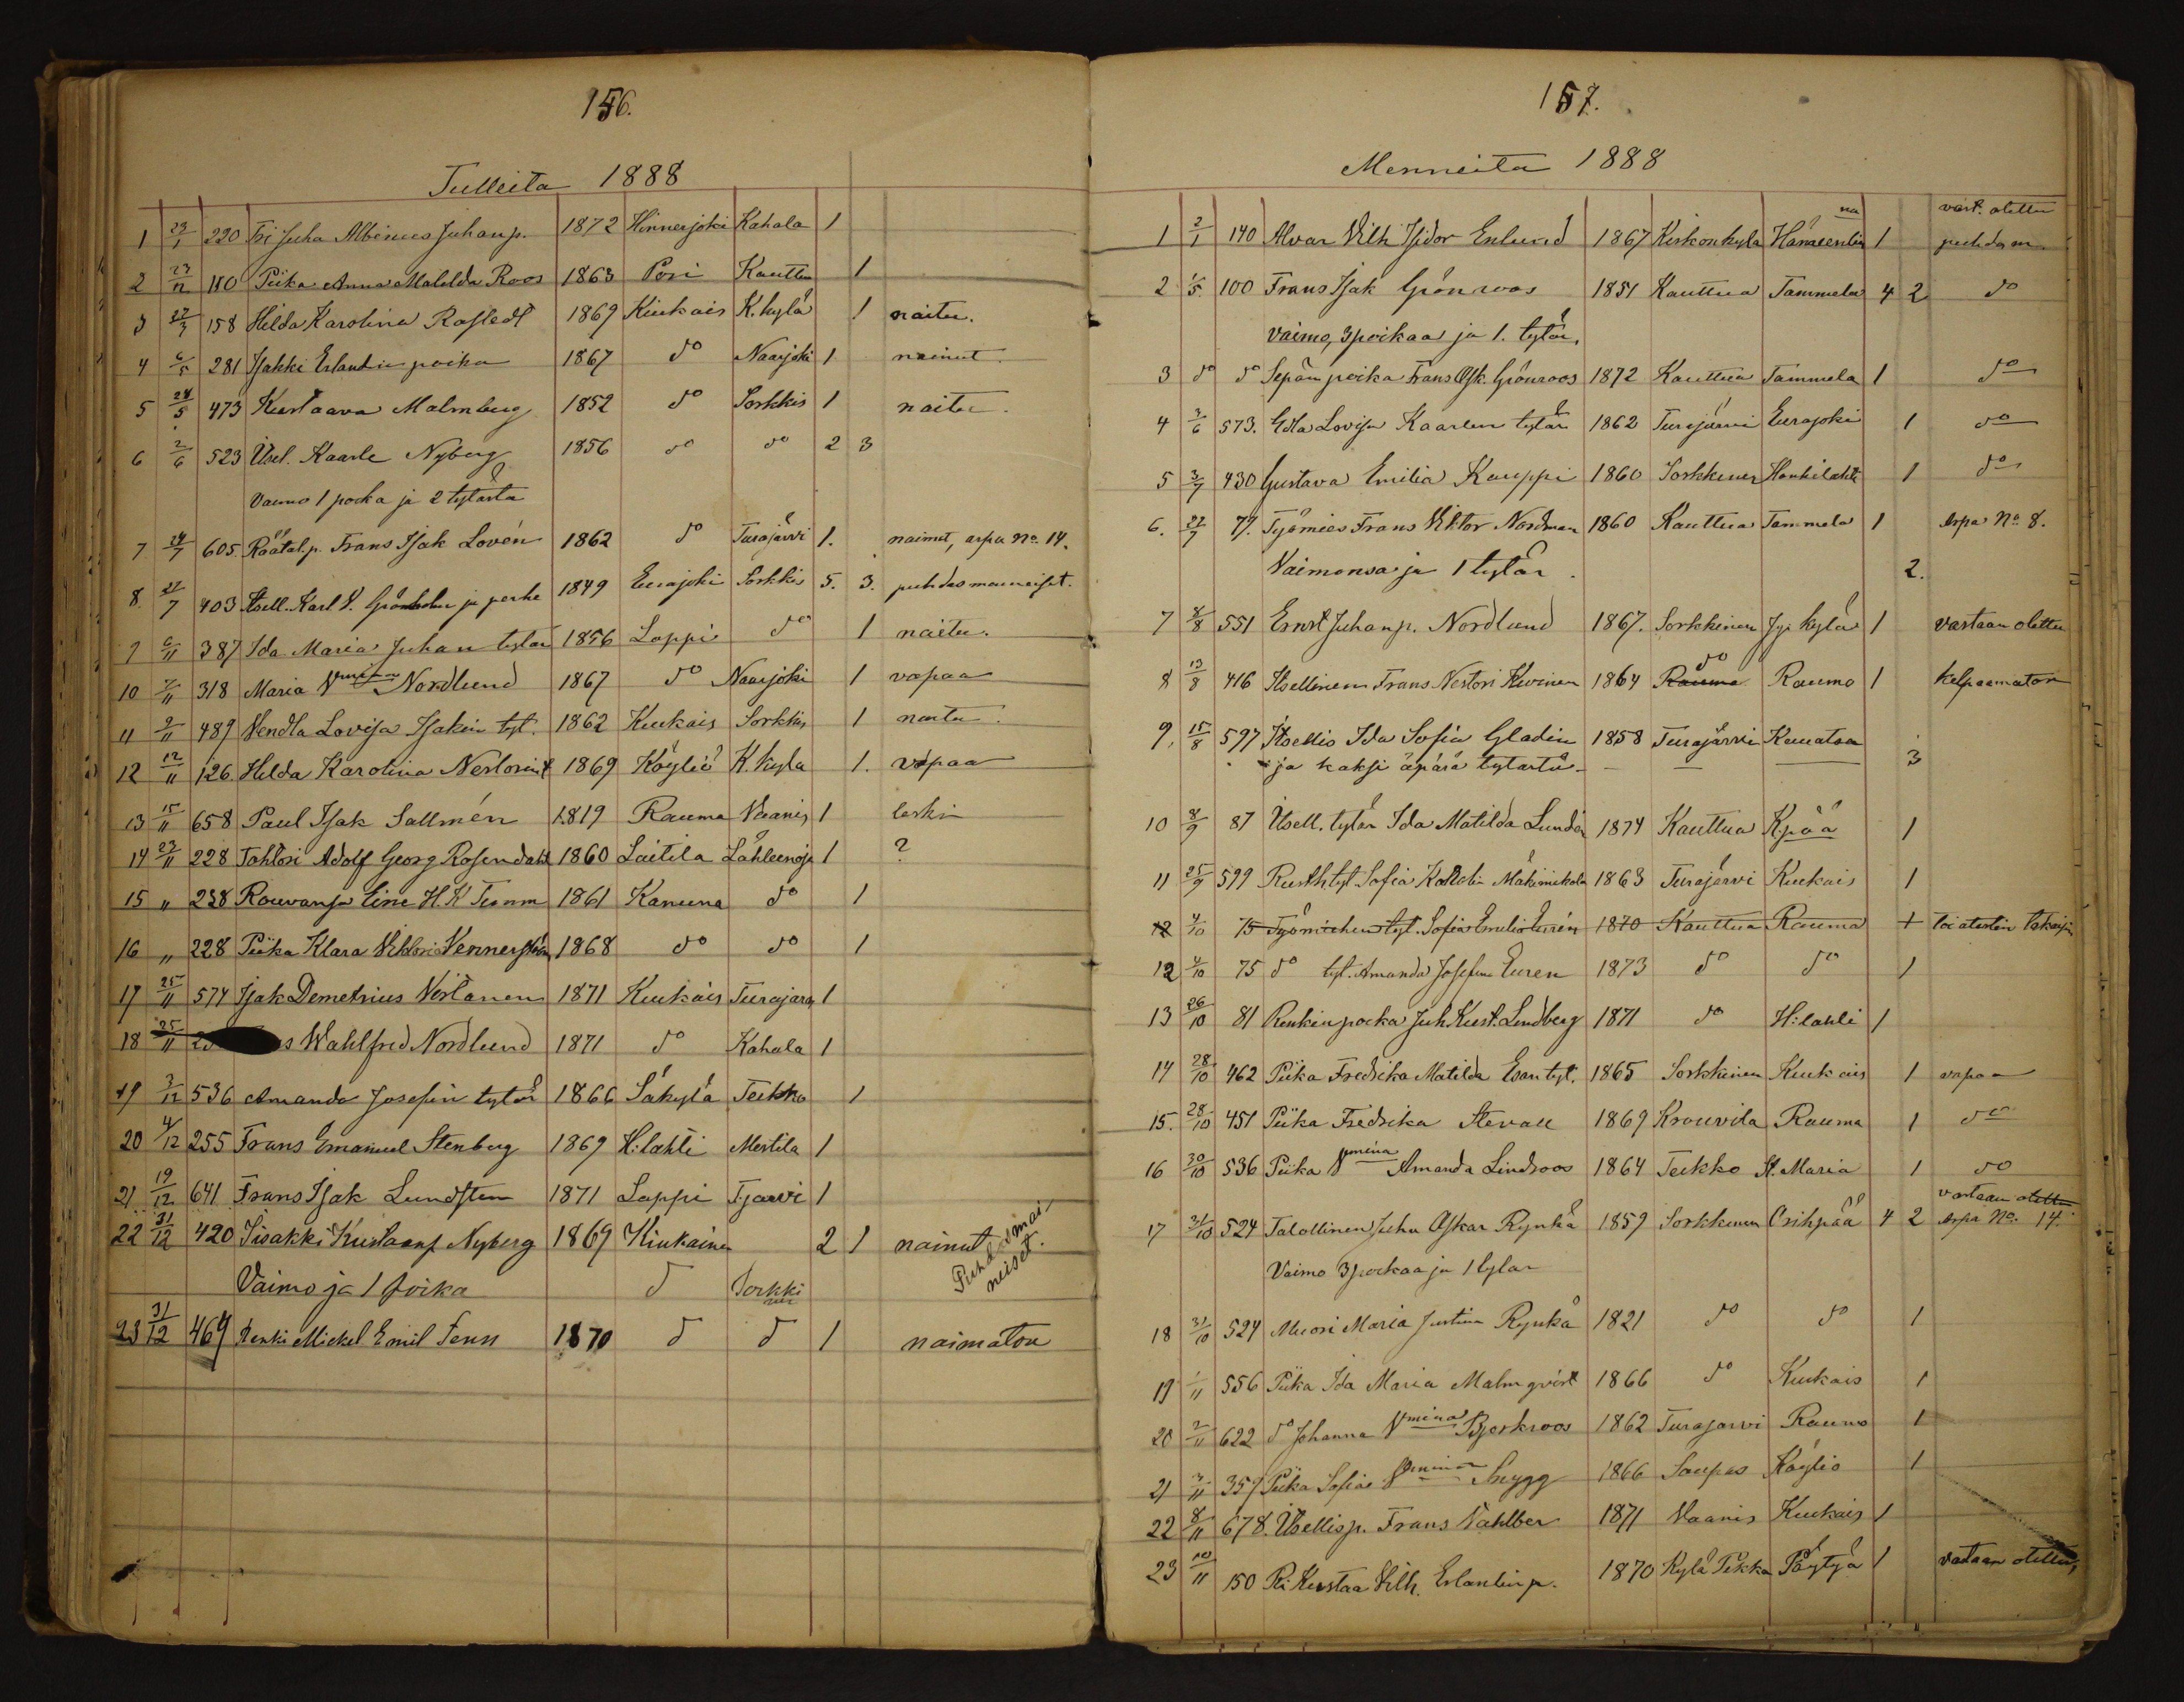 156.
Tulleita 1888
1 23/1 220 Tri Juha Albinus Juhanp. 1872 Hinnerjoki Kahala 1
2 23/12 110 Piika Anna Matilda Roos 1863 Pori Kauttua 1
3 27/3 158 Hilda Karolina Rostedt 1869 Kiukais K. kylä 1 naitu.
4 6/5 281 Isakki Erlandin poika 1867 do Naarjoki 1 nainut
5 24/5 473 Kustaava Malmberg 1852 do Sorkkis 1 naitu.
6 2/6 523 Itsel. Kaarle Nyberg 1856 do do 2 3
Vaimo 1 poika ja 2 tytärtä
7 24/7 605. Räätal.p. Frans Isak Lovén 1862 do Turajärvi 1. nainut, arpa No. 14.
8. 27/7 403 Itsell. Karl V. Grönholm ja perhe 1849 Eurajoki Sorkkis 5. 3. puhdasmaineiset.
9 6/11 387 Ida Maria Juhan tytär 1856 Lappi do 1 naitu.
10 7/11 318 Maria Vmina Nordlund 1867 do Naarjoki 1 vapaa
11 9/11 489 Vendla Lovisa Isakin tyt. 1862 Kiukais Sorkkis 1 naitu.
12 12/11 126. Hilda Karolina Nestorint 1869 Köyliö K. kyla 1. vapaa
13 15/11 658 Paul Isak Sallmén 1819 Rauma Vaanis 1 leski
14 23/11 228 Tohtori Adolf Georg Rosendahl 1860 Laitila Lähteenoja 1 ?
15 " 228 Rouvansa Eine H. K. Tramm 1861 Kanuna do 1
16 " 228 Piika Klara Viktoria Vennerström 1868 do do 1
17 25/11 574 Isak Demetrius Virtanen 1871 Kiukais Turajärvi 1
18 25/11 s Wahlfred Nordlund 1871 do Kahala 1
19 3/12 536 Amanda Josefin tytär 1866 Säkylä Teikko 1
20 4/12 255 Frans Emanuel Stenberg 1869 H:lahti Mestila 1
21 19/12 641 Frans Isak Lundsten 1871 Lappi Tjarvi 1
22 31/12 420 Iisakki Kustaanp Nyberg 1869 Kiukainen 2 1 nainut Puhdasmai-
Vaimo ja 1 poika d Sorkki nen neiset.
23 31/12 469 Renki Mickel Emil Fenn 1870 d d 1 naimaton
157.
Menneita 1888
1 2/1 140 Alvar Vilh Isidor Enlund 1867 Kirkonkyla Hämeenlin na 1 vast. otettu puhdasm.
2 1/5. 100 Frans Isak Grönroos 1851 Kauttua Tammela 4 2 do
Vaimo, 3 poikaa ja 1. tytär.
3 do do Sepän poika Frans Osk. Grönroos 1872 Kauttua Tammela 1 do
4 3/6 573. Edla Lovisa Kaarlen tytär 1862 Turajärvi Eurajoki 1 do
5 3/7 430 Gustava Emilia Kauppi 1860 Sorkkinen Honkilahti 1 do
6. 27/7 77. Työmies Frans Viktor Nordman 1860 Kauttua Tammela 1 Arpa No. 8.
Vaimonsa ja 1 tytär. 2.
7 8/8 551 Ernst Juhanp. Nordlund 1867. Sorkkinen Jyv kylä 1 Vastaan otettu
8 13/8 416 Itsellinen Frans Nestori Kivinen 1864 do Rauma Raumo 1 kelpaamaton
9. 15/8 597 Itsellis Ida Sofia Gladin 1858 Turajärvi Kauatsa
ja kaksi äpärä tytärtä 3
10 8/9 87 Itsell. tytär Ida Matilda Lundén 1874 Kauttua Kpää 1
11 25/9 599 Rusth.tyt Sofia Mäkimikola 1863 Turajärvi Kiukais 1
12 4/10 75 Työmiehen tyt. Sofia Emilia Eurén 1870 Kauttua Rauma 1 toi atestin takaisin
12 4/10 75 do tyt. Amanda Josefina Euren 1873 do do 1
13 26/10 81 Renkin poika Juh. Kust. Lindberg 1871 do H:lahti 1
14 28/10 462 Piika Fredrika Matilda Esan tyt. 1865 Sorkkinen Kiukais 1 vapaa
15. 28/10 451 Piika Fredrika Stevall 1869 Krouvila Rauma 1 do
16 30/10 536 Piika Vmina Amanda Lindroos 1864 Teikko St. Maria 1 do
17 31/10 524 Talollinen Juha Oskar Rynkä 1859 Sorkkinen Orihpää 4 2 vastaan otettu Arpa No. 14.
Vaimo 3 poikaa ja 1 tytar
18 31/10 524 Muori Maria Justina Rynkä 1821 do do 1
19 1/11 556 Piika Ida Maria Malmqvist 1866 do Kiukais 1
20 2/11 622 do Johanna Vmina Bjorkroos 1862 Turajarvi Raumo 1
21 3/11 359 Piika Sofia Vmina Snygg 1866 Saupas Köyliö 1
22 8/11 678. Itsellisp. Frans Vahlber 1871 Vaanis Kiukais 1
23 10/11 150 Ri Kustaa Vilh. Erlantinp. 1870 Kylä Pekka Pöytyä 1 vastaan otettu,